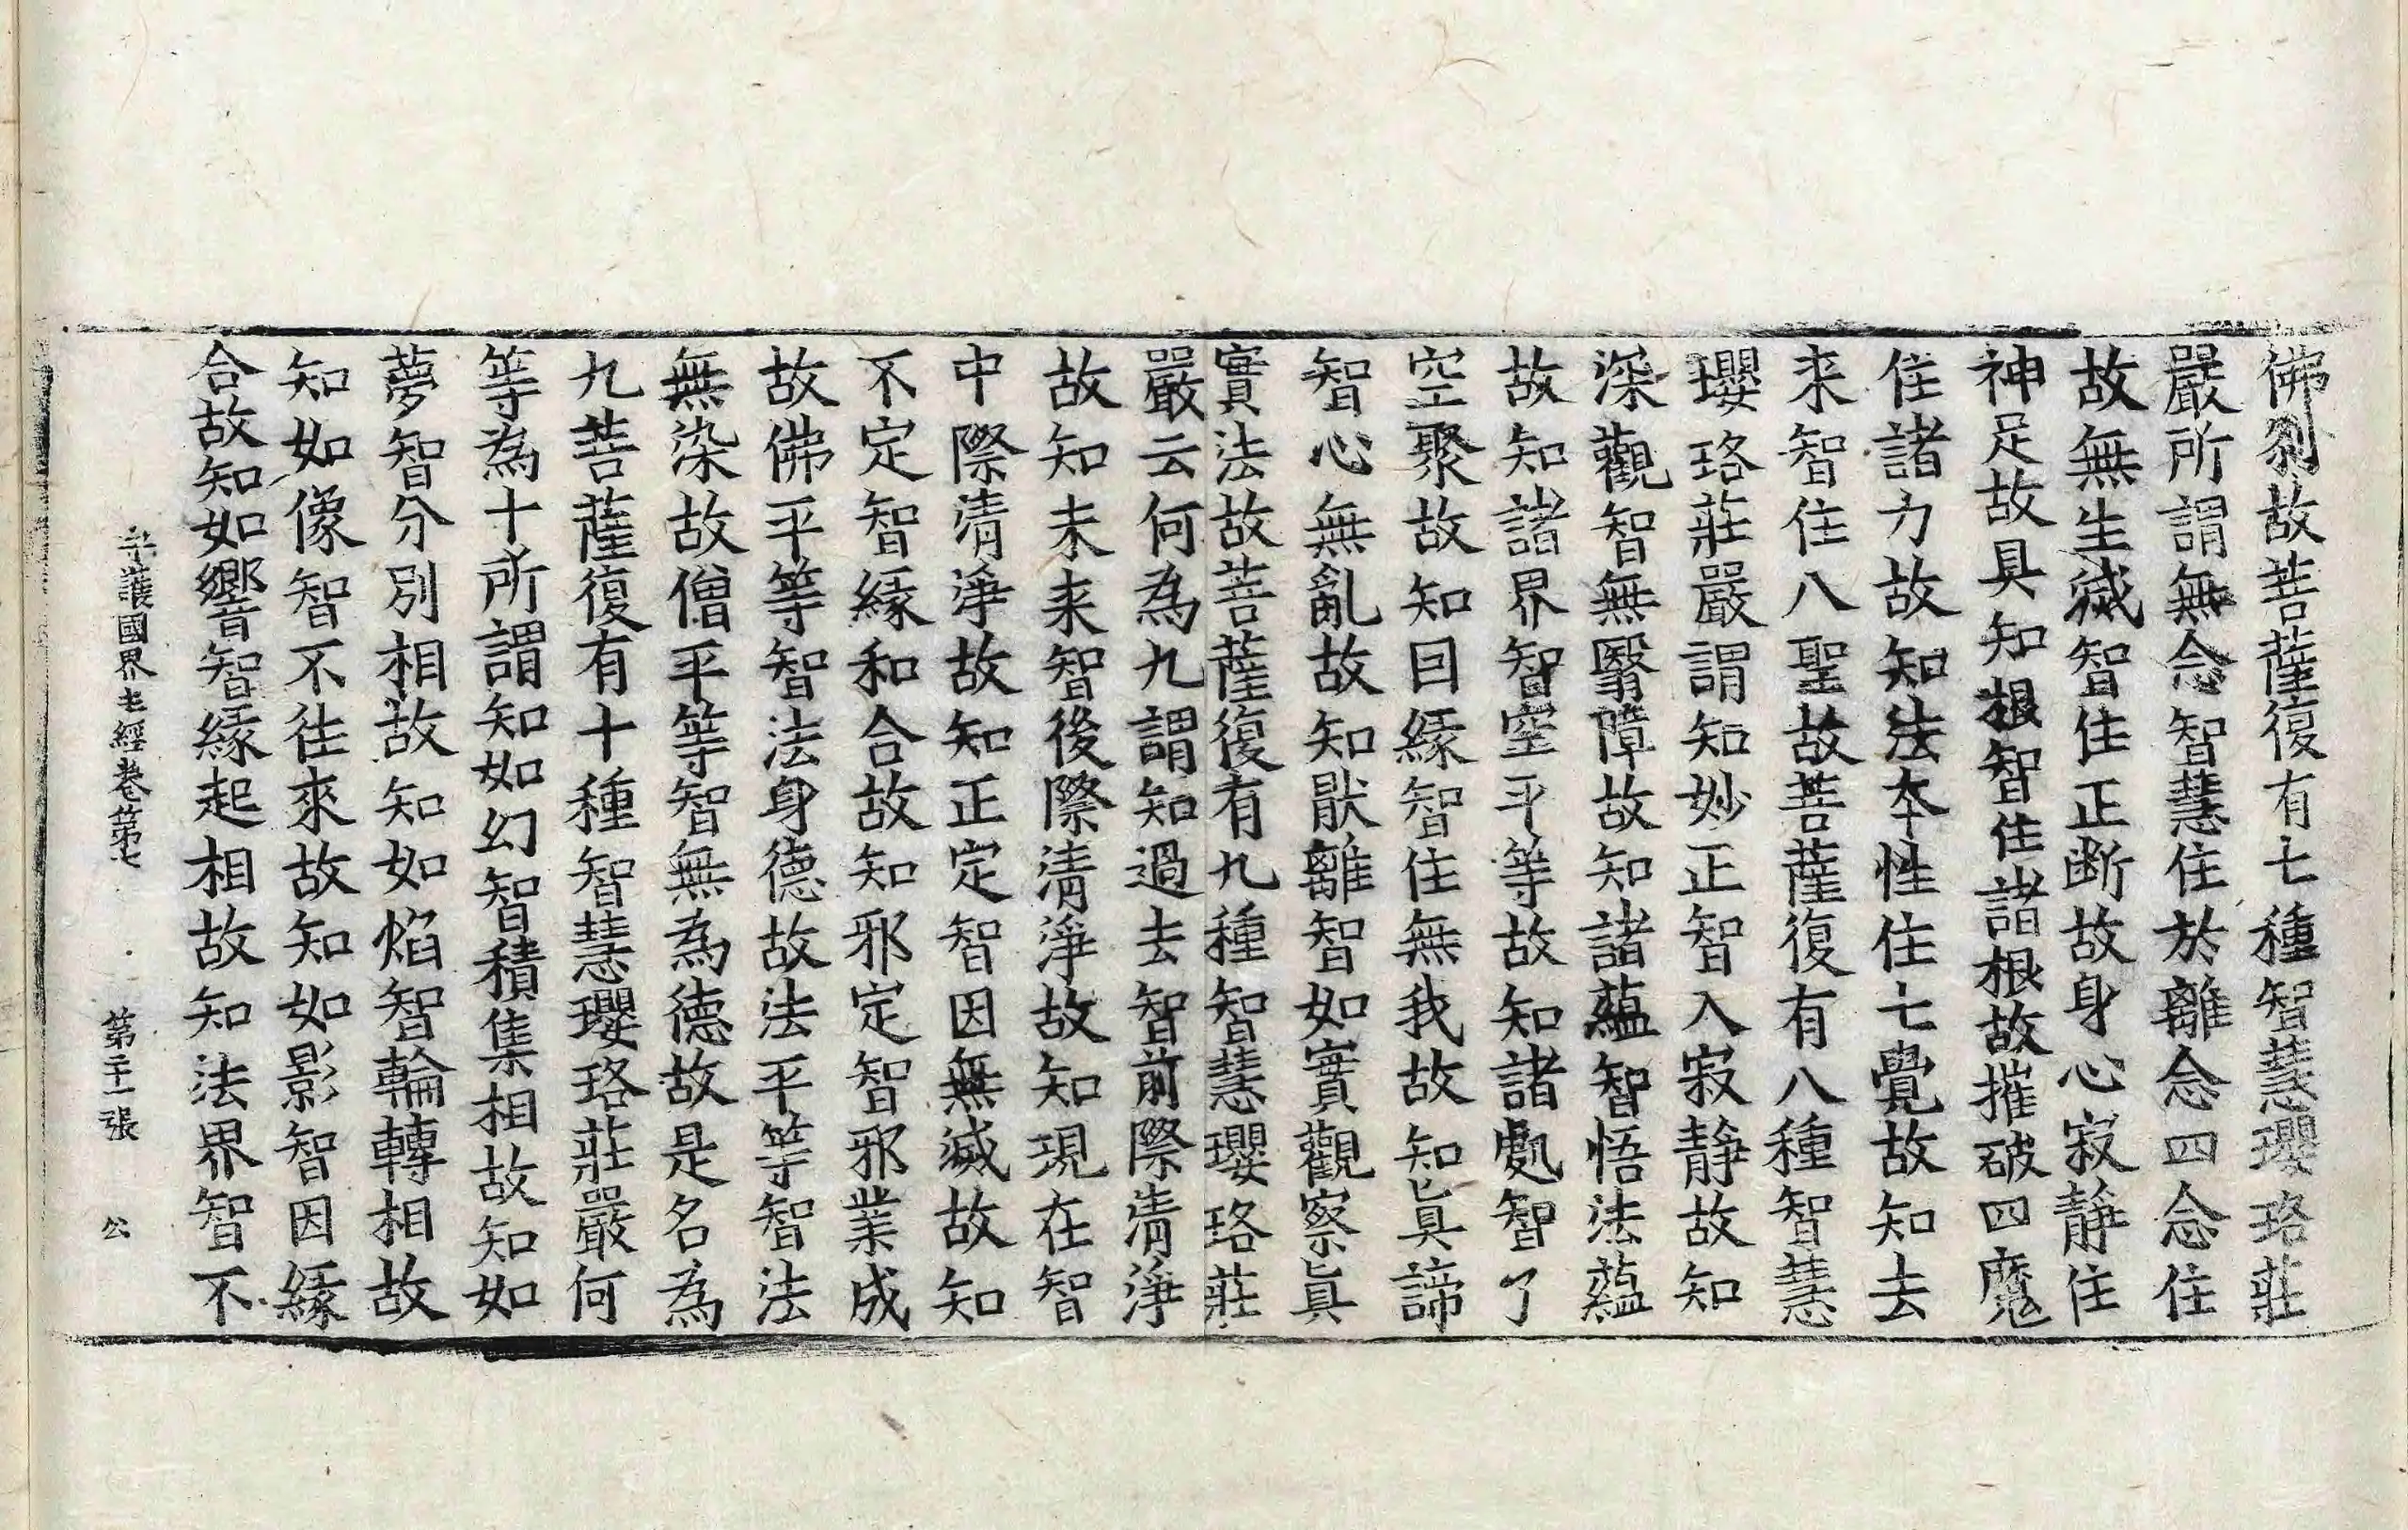 佛刹故菩薩復有七種智慧瓔珞莊
嚴所謂無念智慧住於離念四念住
故無生滅智住正断故身心寂靜住
神足故具知根智住諸根故摧破四魔
住諸力故知法本性住七覺故知去
来智住八聖故菩薩復有八種智慧
瓔珞莊嚴謂知妙正智入寂靜故知
深觀智無翳障故知諸蘊智悟法蘊
故知諸界智空平等故知諸處智了
空聚故知因緣智住無我故知眞諦
智心無亂故知猒離智如實觀察眞
實法故菩薩復有九種智慧瓔珞莊
嚴云何為九謂知過去智前際清淨
故知未来智後際清淨故知現在智
中際清淨故知正定智因無滅故知
不定智緣和合故知邪定智邪業成
故佛平等智法身德故法平等智法
無染故僧平等智無為德故是名為
九菩薩復有十種智慧瓔珞莊嚴何
等為十所謂知如幻智積集相故知如
夢智分別相故知如焰智輪轉相故
知如像智不往來故知如影智因緣
合故知如響智緣起相故知法界智不
守護國界主經卷第七 第二十一張 公